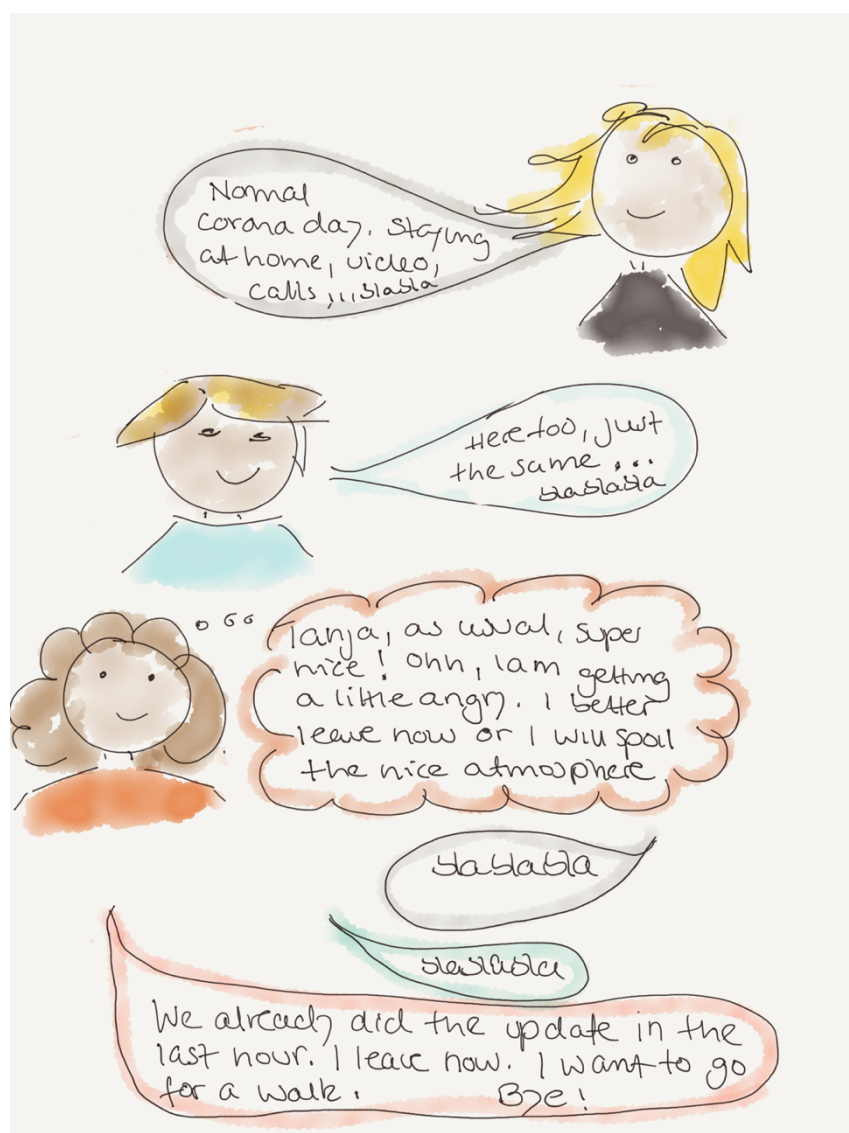 Normal
corona day. staying
at home, video,
calls ,,, blabla
Here too, just
the same ...
blablabla
Tanja, as usual, super
nice! Ohh, I am getting
a little angry. I better
leave now or I will spoil
the nice atmosphere
blablabla
blablabla
We already did the update in the
last hour. I leave now. I want to go
for a walk. Bye!